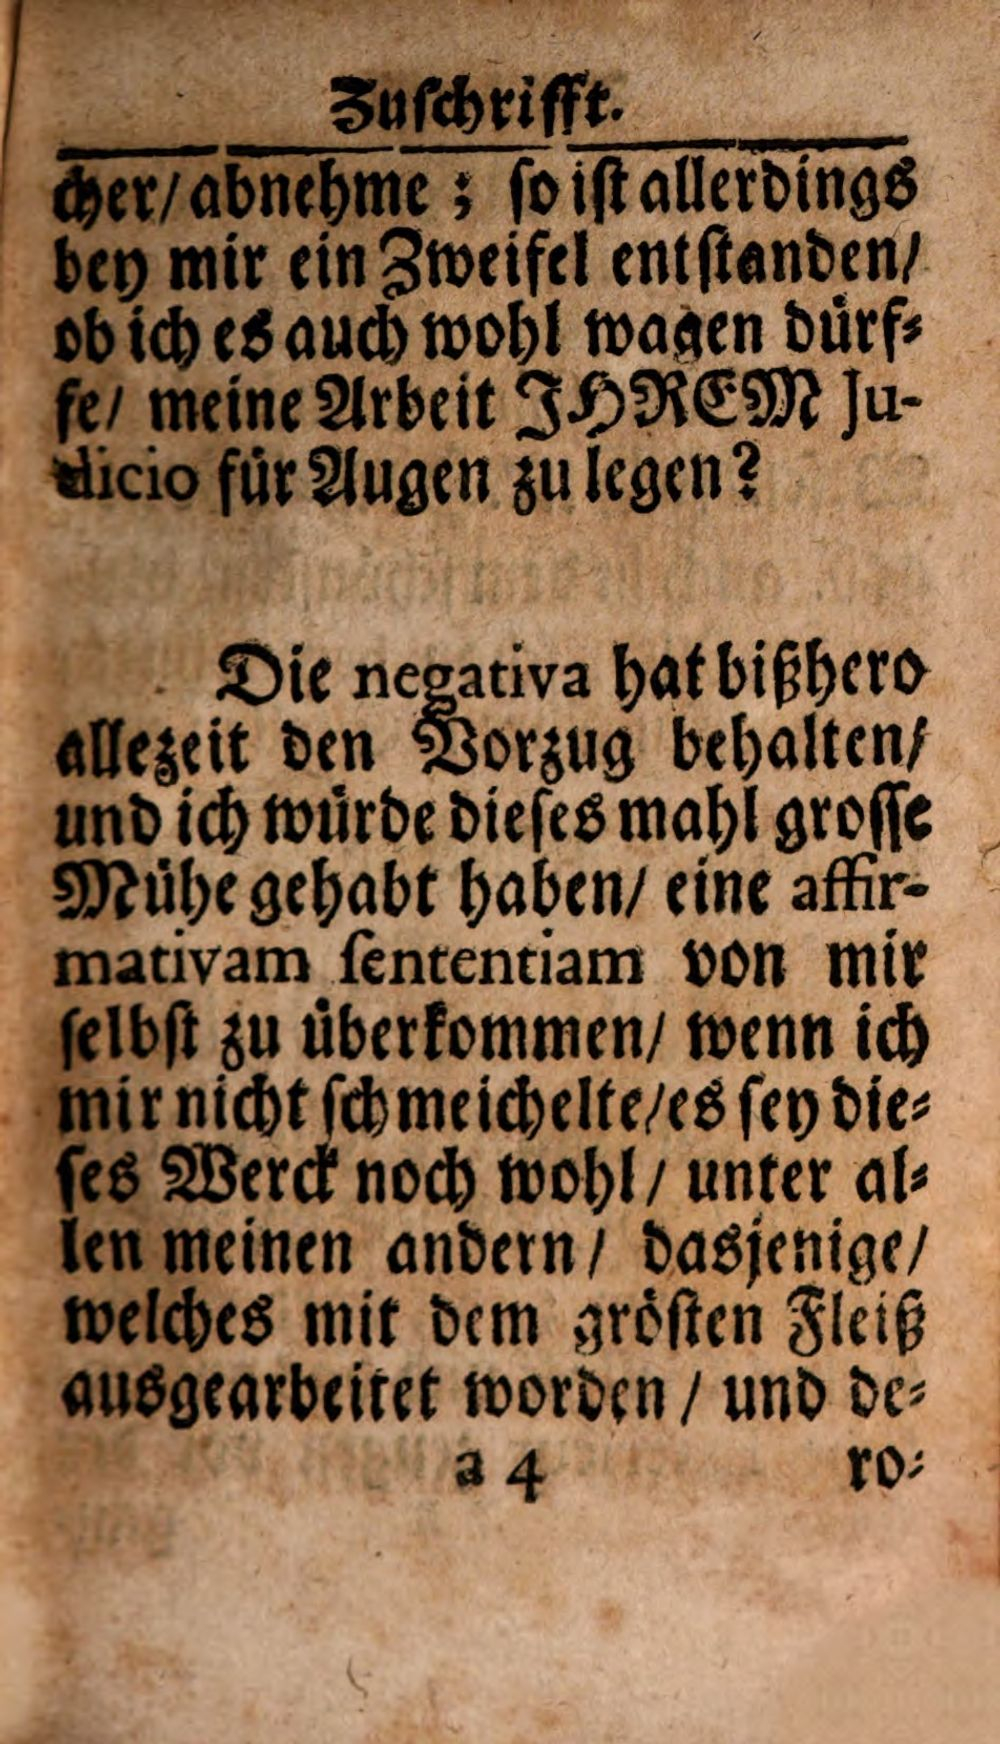 Zuſchrifft.
cher/ abnehme; ſo iſt allerdings
bey mir ein Zweifel entſtanden/
ob ich es auch wohl wagen dürf⸗
fe/ meine Arbeit IHREM Ju-
dicio für Augen zu legen?
Die negativa hat bißhero
allezeit den Vorzug behalten/
und ich würde dieſes mahl groſſe
Mühe gehabt haben/ eine affir-
mativam ſententiam von mir
ſelbſt zu überkommen/ wenn ich
mir nicht ſchmeichelte/ es ſey die⸗
ſes Werck noch wohl/ unter al⸗
len meinen andern/ dasjenige/
welches mit dem gröſten Fleiß
ausgearbeitet worden/ und de⸗
a 4 ro⸗